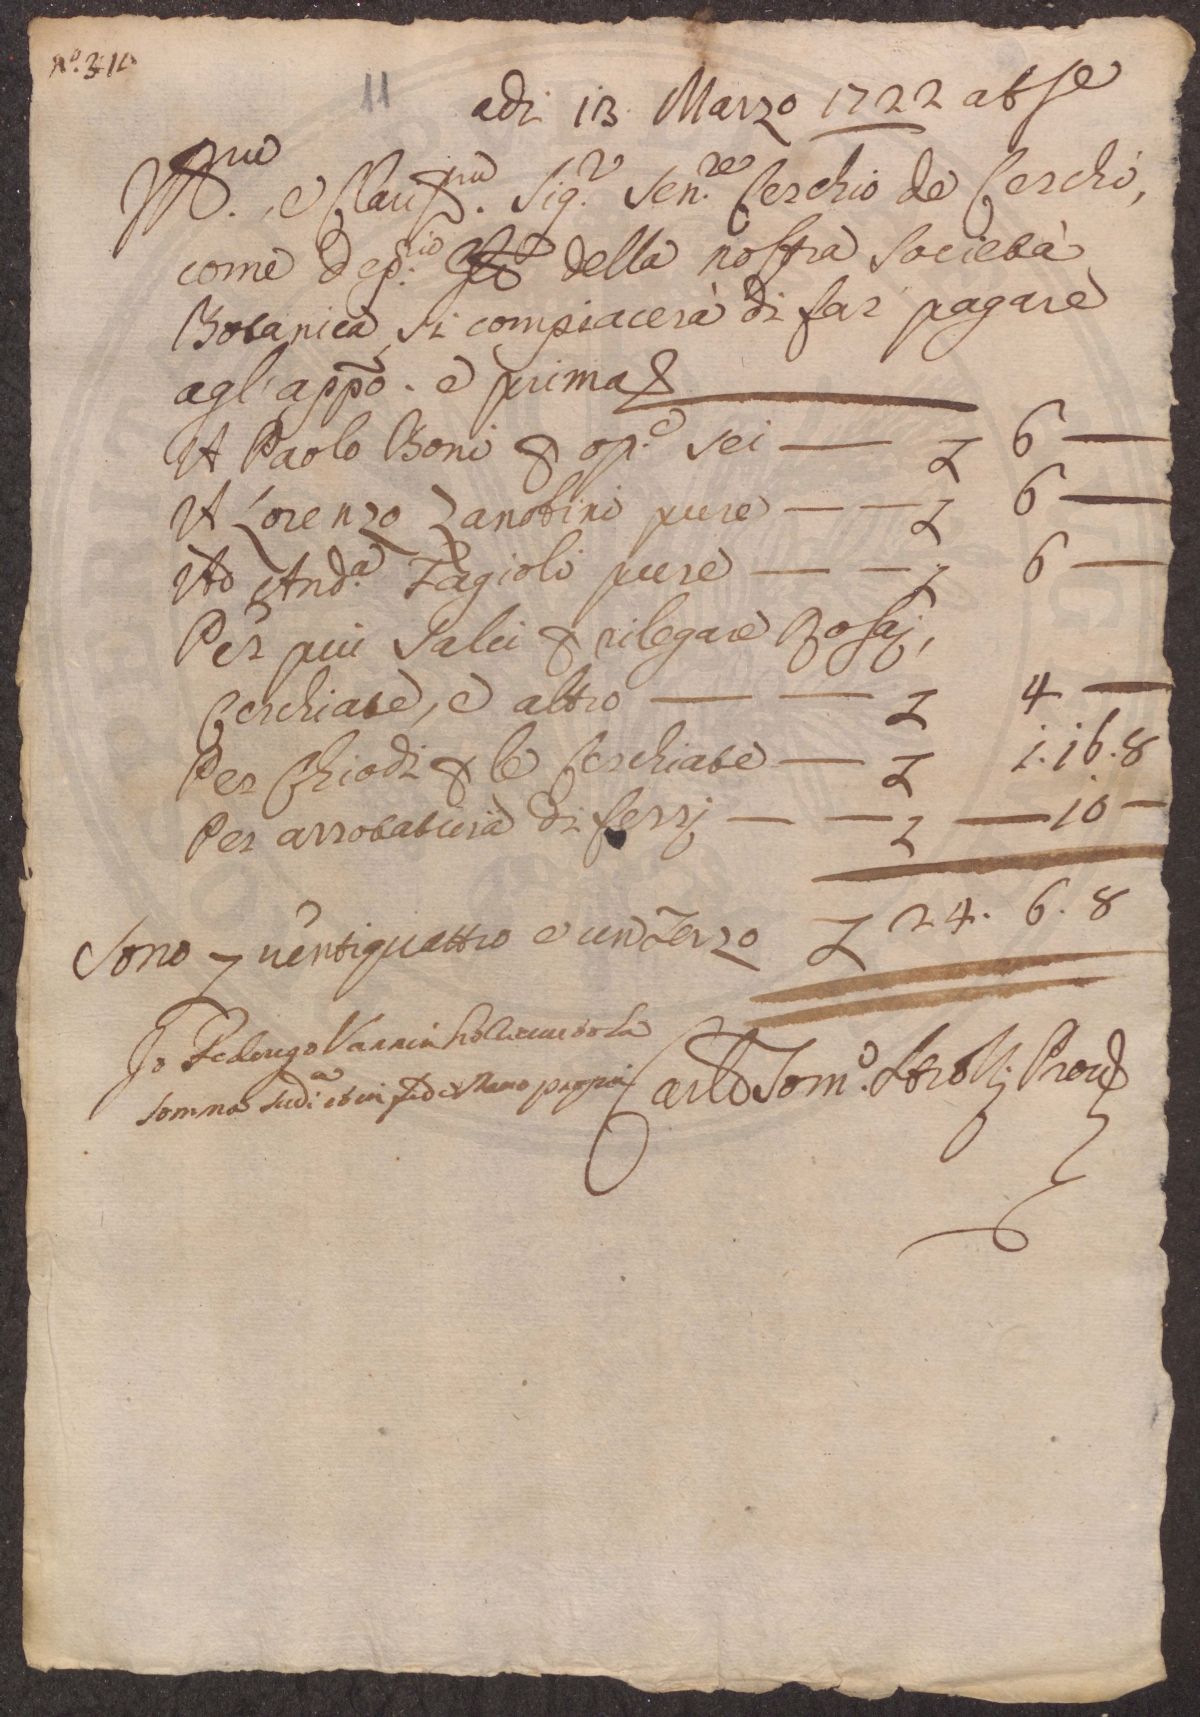 11
adi 13 Marzo 1722 ab Ie
Ill.mo, e Clariss.mo Sig.r Sen.re Cerchio de Cerchi,
come Dep.rio della nostra Società
Botanica, si compiacerà di far pagare
agl'appo. e prima
A Paolo Boni p op.e sei — £ 6 —
A Lorenzo Zanobini pure — — £ 6 —
Ad And.a Fagioli pure — — £ 6 —
Per più Salci p rilegare Rosaj,
Cerchiate, e altro — — £ 4 —
Per Chiodi p le Cerchiate — £ 1.16.8
Per arrotatura di ferrj — — £ — 10 —
Sono £ ventiquattro e un Terzo £ 24. 6. 8
Io Federigo Vannini ho ricevuto La
somma sud.a et in fede Mano propria
Carlo Tom.o Strozzi Prov.